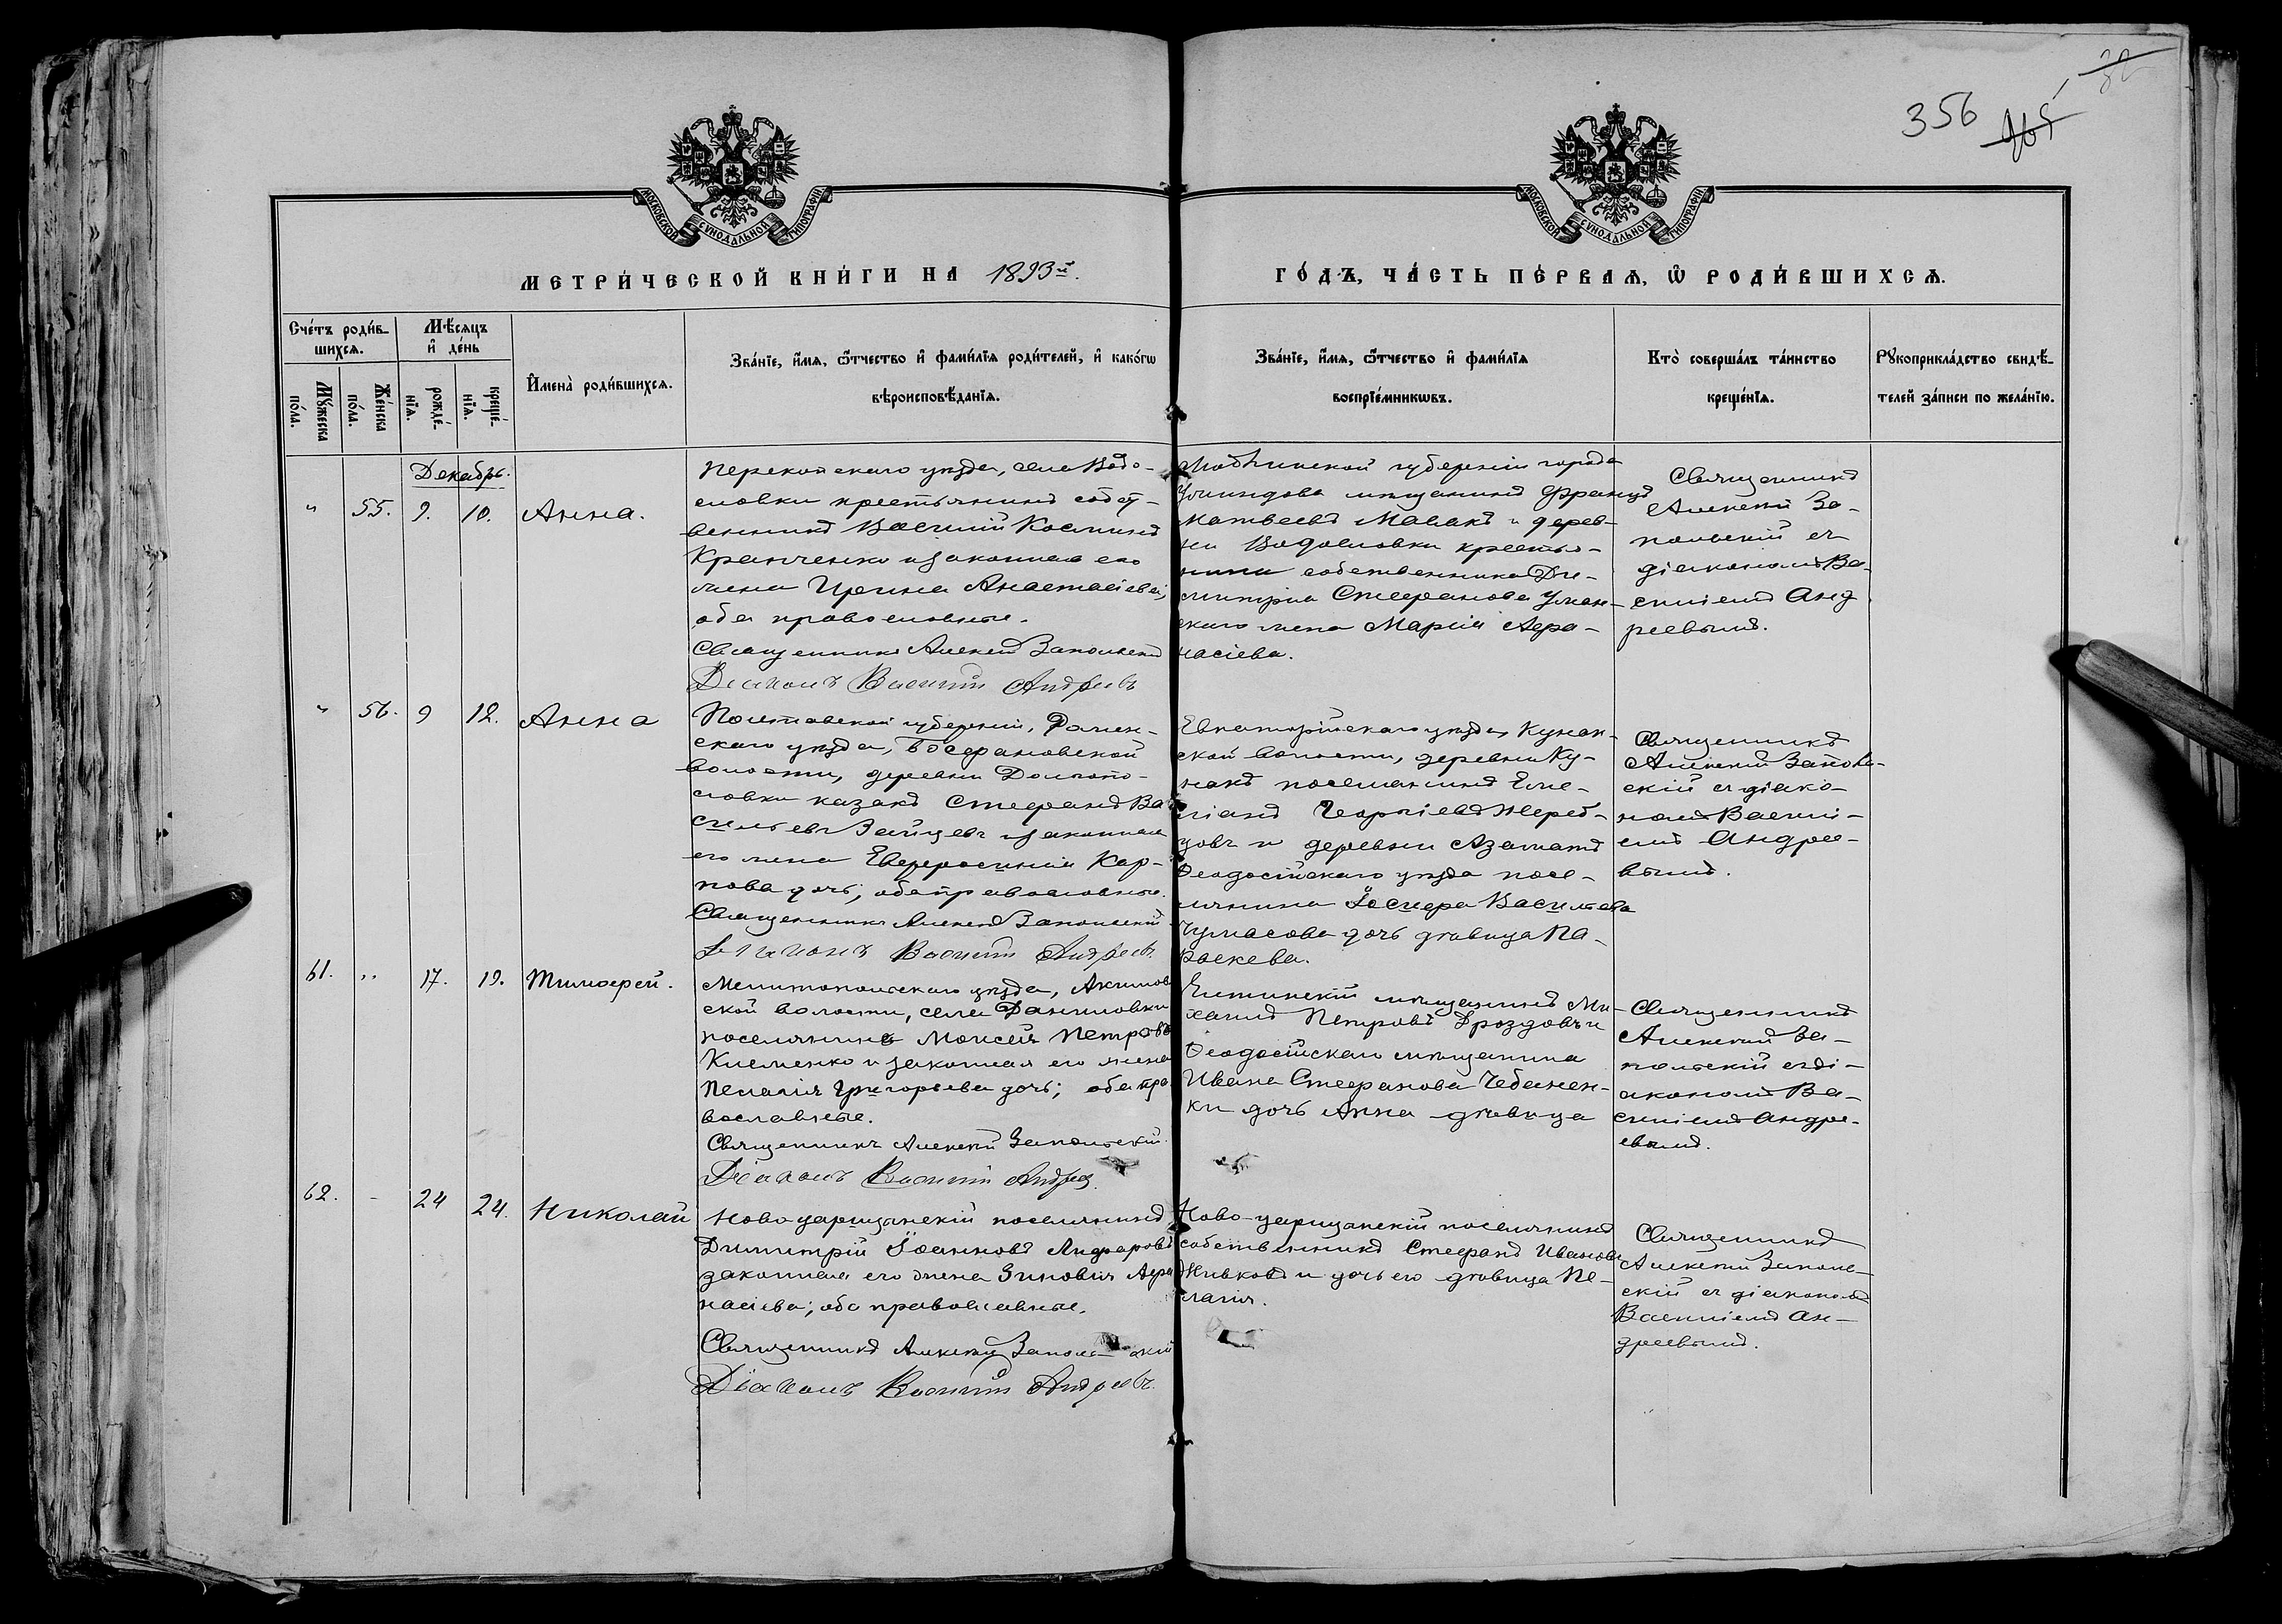 356
165
32
МОСКОВСКОЙ СѴНОДАЛЬНОЙ ТИПОГРАФІИ
МОСКОВСКОЙ СѴНОДАЛЬНОЙ ТИПОГРАФІИ
МЕТРИ́ЧЕСКОЙ КНИ́ГИ НА 1893й.
ГО́ДЪ, ЧА́СТЬ ПЕ́РВАѦ, Ѽ РОДИ́ВШИХСѦ.
Сче́тъ роди́в-
шихсѧ.
Мѣ́сѧцъ
и҆ де́нь
Мꙋ́жеска по́ла.
Же́нска по́ла.
рожде́-нїѧ.
креще́-нїѧ.
И҆мена̀ роди́вшихсѧ.
Зва́нїе, и҆́мѧ, ѻ҆́тчество и҆ фами́лїѧ роди́телей, и҆ како́гѡ
вѣроисповѣ́данїѧ.
Зва́нїе, и҆́мѧ, ѻ҆́тчество и҆ фами́лїѧ
воспрїе́мникѡвъ.
Кто̀ соверша́лъ та́инство
креще́нїѧ.
Рꙋкоприкла́дство свидѣ́-
телей за́писи по жела́нїю.
Декабрь.
" 55. 9. 10. Анна.
Перекопскаго уѣзда, села Водо-
словки крестьянинъ собст-
венникъ Василій Косминъ
Кравченко и законная его
жена Ирина Анастасіева;
оба православные.
Священникъ Алексій Запольскій
Діаконъ Василій Андреевъ
губерніи города
мѣщанинъ Францъ
Матвеевъ Мавакъ и дерев-
ни Водословки крестья-
нина собственника Ди-
митрія Стефанова Уман-
скаго жена Марія Афа-
насіева.
Священникъ
Алексій За-
польскій съ
діакономъ Ва-
силіемъ Анд
реевымъ.
" 56. 9 12. Анна
Полтавской губерніи, Ромен-
скаго уѣзда,
волости, деревни
словки казакъ Стефанъ Ва
сильевъ Зайцевъ и законная
его жена Евфросинія Кар-
пова дочь; оба православные.
Священникъ Алексій Запольскій
Діаконъ Василій Андреевъ.
Евпаторійскаго уѣзда, Кунан-
ской волости, деревни Ку-
нанъ поселянинъ Еме-
ліанъ Георгіевъ Жереб-
цовъ и деревни Азаматъ
Ѳеодосійскаго уѣзда посе-
лянина Іосифа Васильева
Чумасова дочь дѣвица Па-
раскева.
Священникъ
Алексій Заполь-
скій съ діако-
номъ Васили-
емъ Андрее-
вымъ.
61. " 17. 19. Тимофей.
Мелитопольскаго уѣзда, Акимов
ской волости, села Даниловки
поселянинъ Моисей Петровъ
Клименко и законная его жена
Пелагія Григорьева дочь; оба пра
вославные.
Священникъ Алексій Запольскій.
Діаконъ Василій Андреев.
мѣщанинъ Ми-
хаилъ Петровъ Дроздовъ и
Ѳеодосійскаго мѣщанина
Ивана Стефанова Чебанен-
ки дочь Анна дѣвица
Священникъ
Алексій За-
польскій съ ді-
акономъ Ва-
силіемъ Андре-
евымъ.
62. - 24 24. Николай
Ново-царицанскій поселянинъ
Димитрій Іоанновъ
законная его жена Зиновія Афа
насіева; оба православные.
Священникъ Алексій Запольскій
Діаконъ Василій Андреевъ.
Ново-царицанскій поселянинъ
собственникъ Стефанъ Ивановъ
Живковъ и дочь его дѣвица Пе-
лагія.
Священникъ
Алексій Заполь-
скій съ діакономъ
Василіемъ Ан-
дреевымъ.